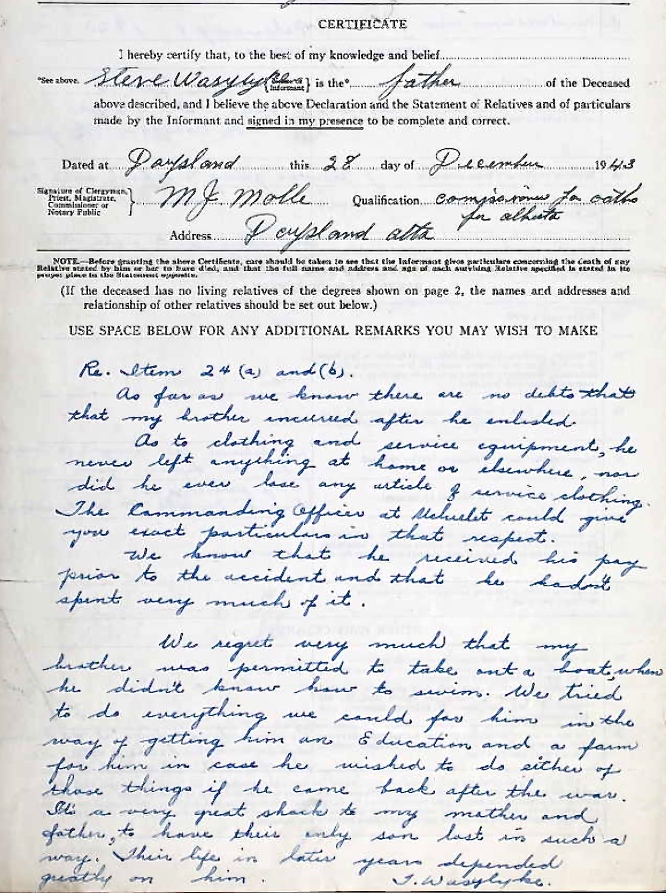 CERTIFICATE
I hereby certify that, to the best of my knowledge and belief
*See above. Steve Wasylyke { Informant } is the* father of the Deceased
above described, and I believe the above Declaration and the Statement of Relatives and of particulars
made by the Informant and signed in my presence to be complete and correct.
Dated at Daysland this 28 day of December 1943
Signature of Clergyman, Priest, Magistrate, Commissioner or Notary Public } M J Molle Qualification commissioner for oaths
for alberta
Address Daysland alta
NOTE.—Before granting the above Certificate, care should be taken to see that the Informant gives particulars concerning the death of any
Relative stated by him or her to have died, and that the full name and address and age of each surviving Relative specified is stated in its
proper place in the Statement opposite.
(If the deceased has no living relatives of the degrees shown on page 2, the names and addresses and
relationship of other relatives should be set out below.)
USE SPACE BELOW FOR ANY ADDITIONAL REMARKS YOU MAY WISH TO MAKE
Re. Item 24 (a) and (b).
As far as we know there are no debts that
that my brother incurred after he enlisted.
As to clothing and service equipment, he
never left anything at home or elsewhere, nor
did he ever lose any article of service clothing.
The Commanding Officer at Ucluelet could give
you exact particulars in that respect.
We know that he received his pay
prior to the accident and that he hadn't
spent very much of it.
We regret very much that my
brother was permitted to take out a boat, when
he didn't know how to swim. We tried
to do everything we could for him in the
way of getting him an Education and a farm
for him in case he wished to do either of
those things if he came back after the war.
It's a very great shock to my mother and
father, to have their only son lost in such a
way. Their life in later years depended
greatly on him. T. Wasylyke.